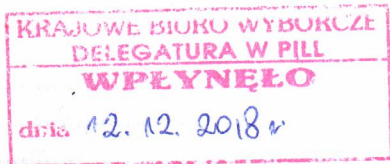 KRAJOWE BIURO WYBORCZE
DELEGATURA W PILE
WPŁYNĘŁO
dnia 12. 12. 2018 r